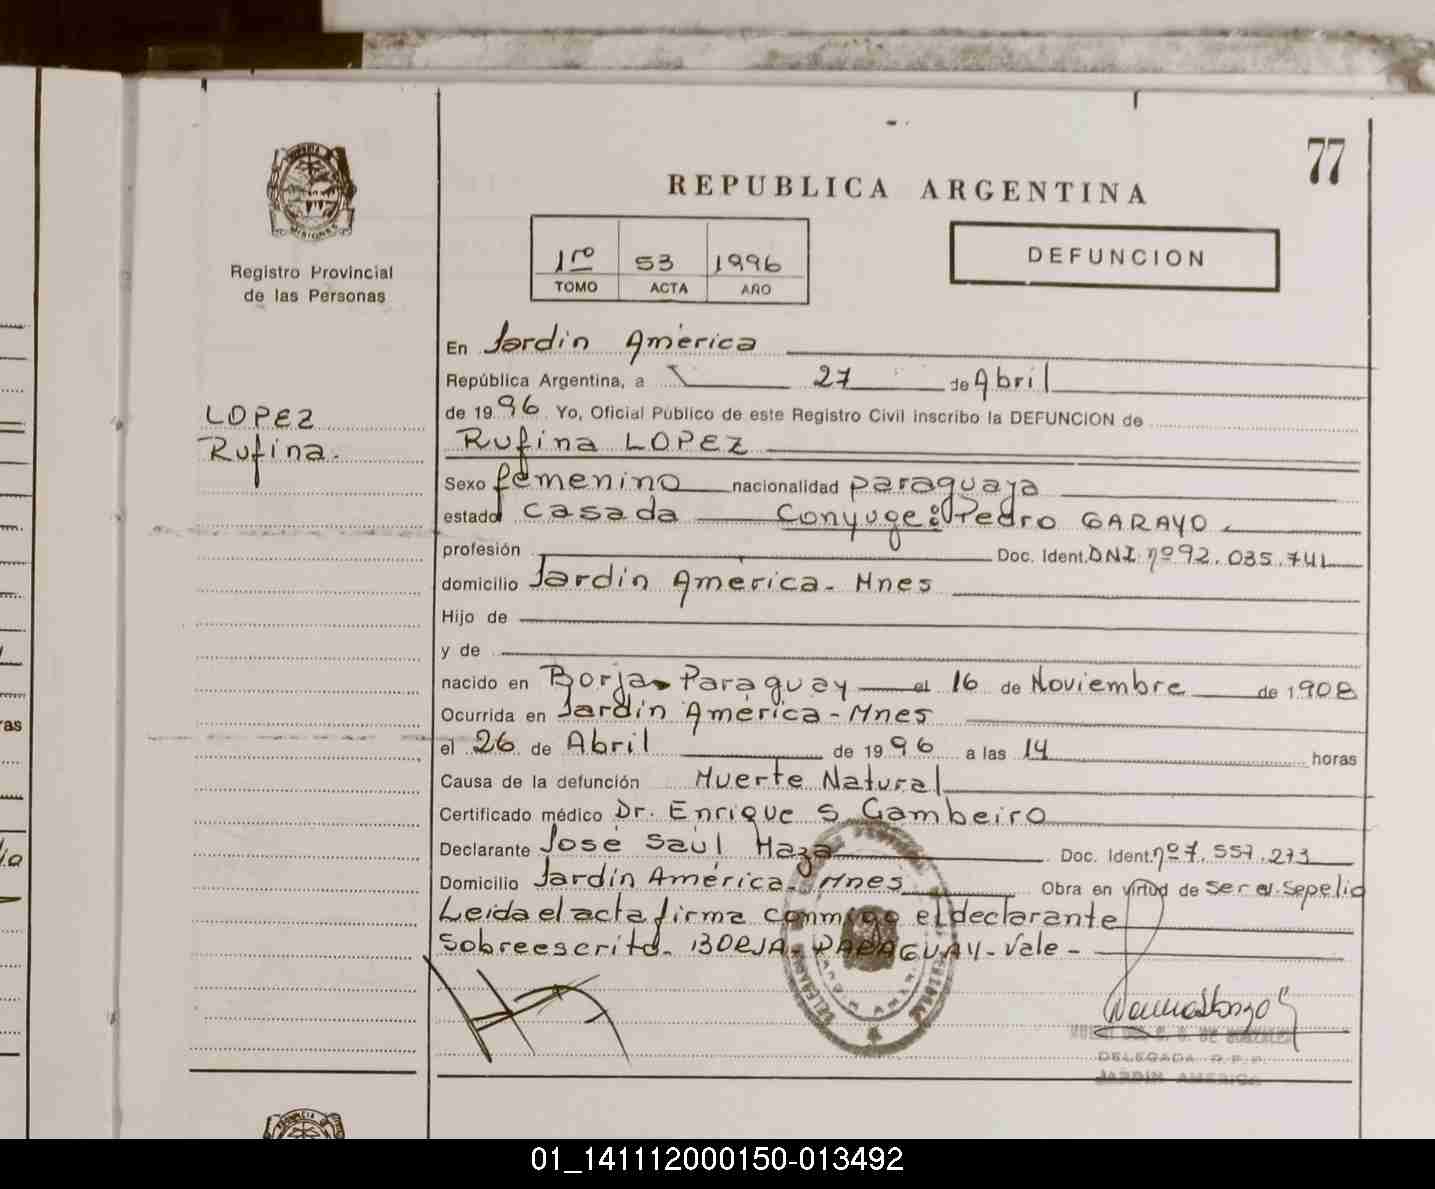 77
REPUBLICA ARGENTINA
PROVINCIA DE
MISIONES
Registro Provincial
de las Personas
1ro 53 1996
TOMO ACTA AÑO
DEFUNCION
LOPEZ
Rufina.
En Jardín América
República Argentina, a 27 de Abril
de 1996 Yo, Oficial Público de este Registro Civil inscribo la DEFUNCION de
Rufina LOPEZ
Sexo femenino nacionalidad paraguaya
estado casada Conyuge: Pedro GARAYO
profesión Doc. Ident. DNI. nº 92.035.741
domicilio Jardín América - Mnes
Hijo de
y de
nacido en Borja - Paraguay el 16 de Noviembre de 1908
Ocurrida en Jardín América - Mnes
el 26 de Abril de 1996 a las 14 horas
Causa de la defunción Muerte Natural
Certificado médico Dr. Enrique S. Gambeiro
Declarante José Saúl Maza Doc. Ident. nº 7.557.273
Domicilio Jardín América - Mnes Obra en virtud de Ser ev. Sepelio
Leída el acta firma conmigo el declarante
Sobreescrito - BORJA - PARAGUAY - Vale -
DE GONZALEZ
DELEGADA R.P.P.
JARDIN AMERICA
01_141112000150-013492